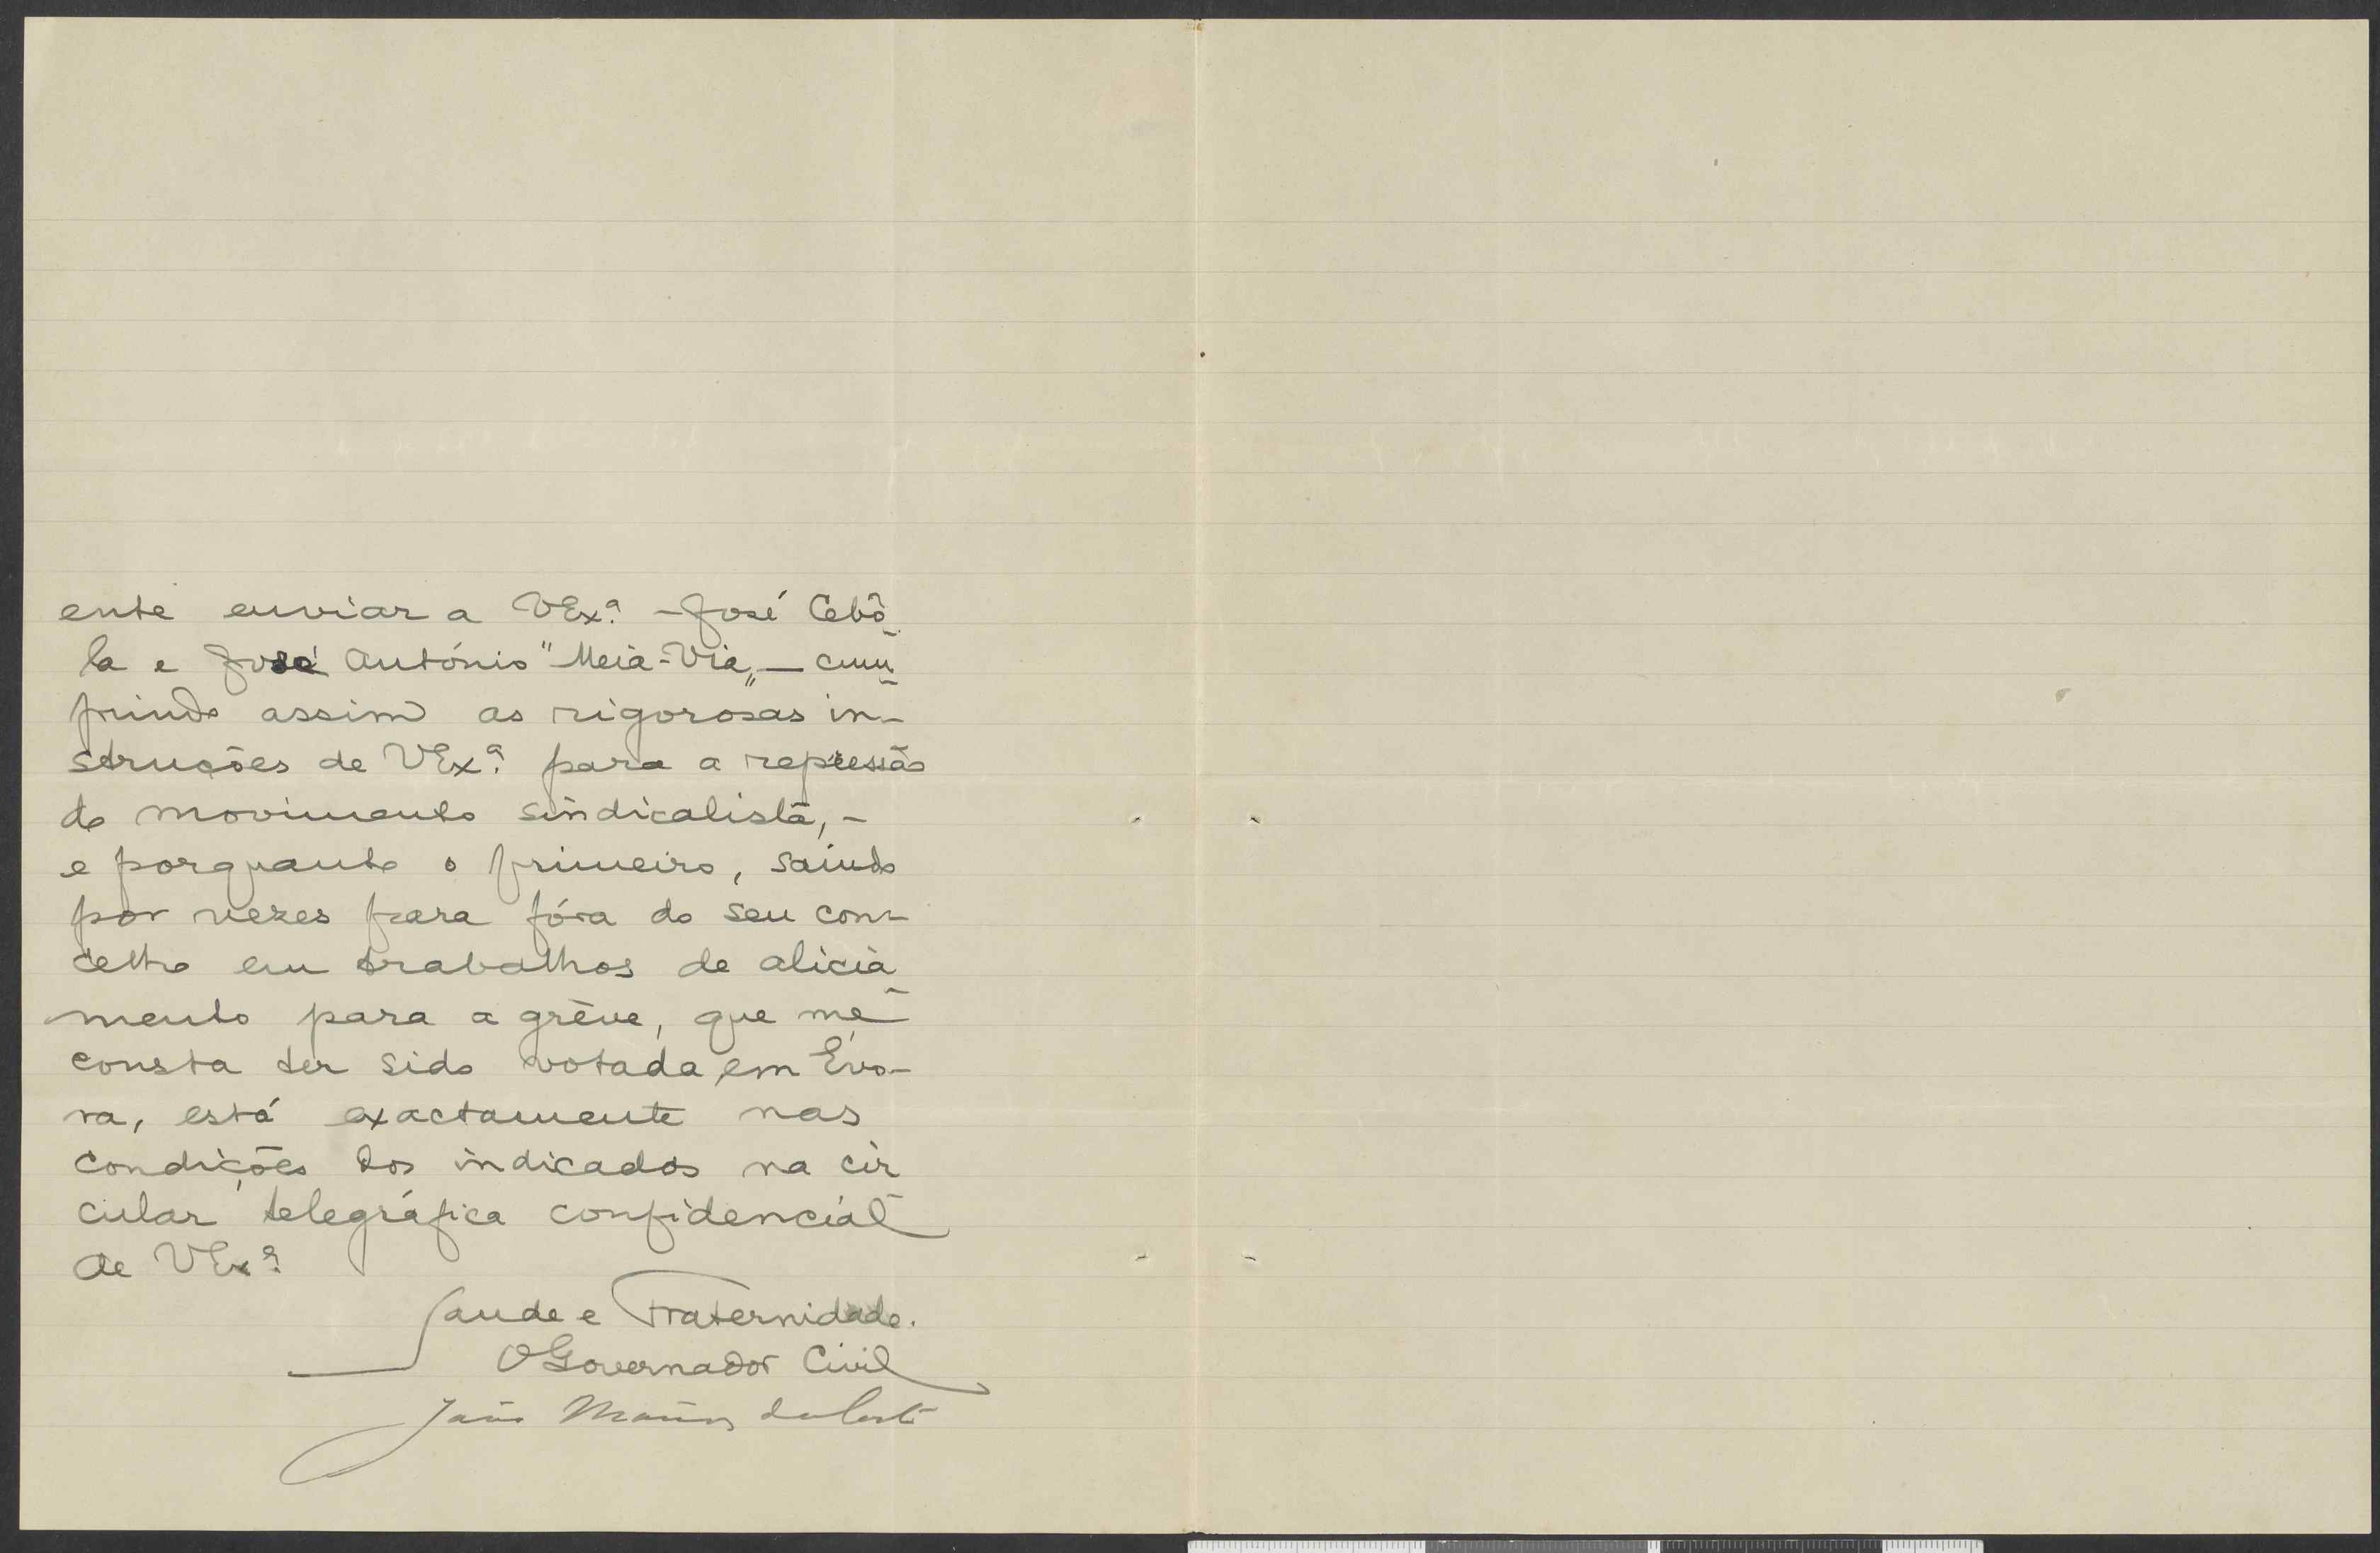 ente enviar a VExª - José Cebô-
la e José António "Meia-Via„ — cum-
prindo assim as rigorosas in-
struções de VExª para a repressão
do movimento sindicalista, -
e porquanto o primeiro, saindo
por vezes para fóra do seu con-
celho em trabalhos de alicia-
mento para a gréve, que me
consta ter sido votada em Evo-
ra, está exactamente nas
condições dos indicados na cir-
cular telegráfica confidencial
de VExª
Saude e Fraternidade.
O Governador Civil
João